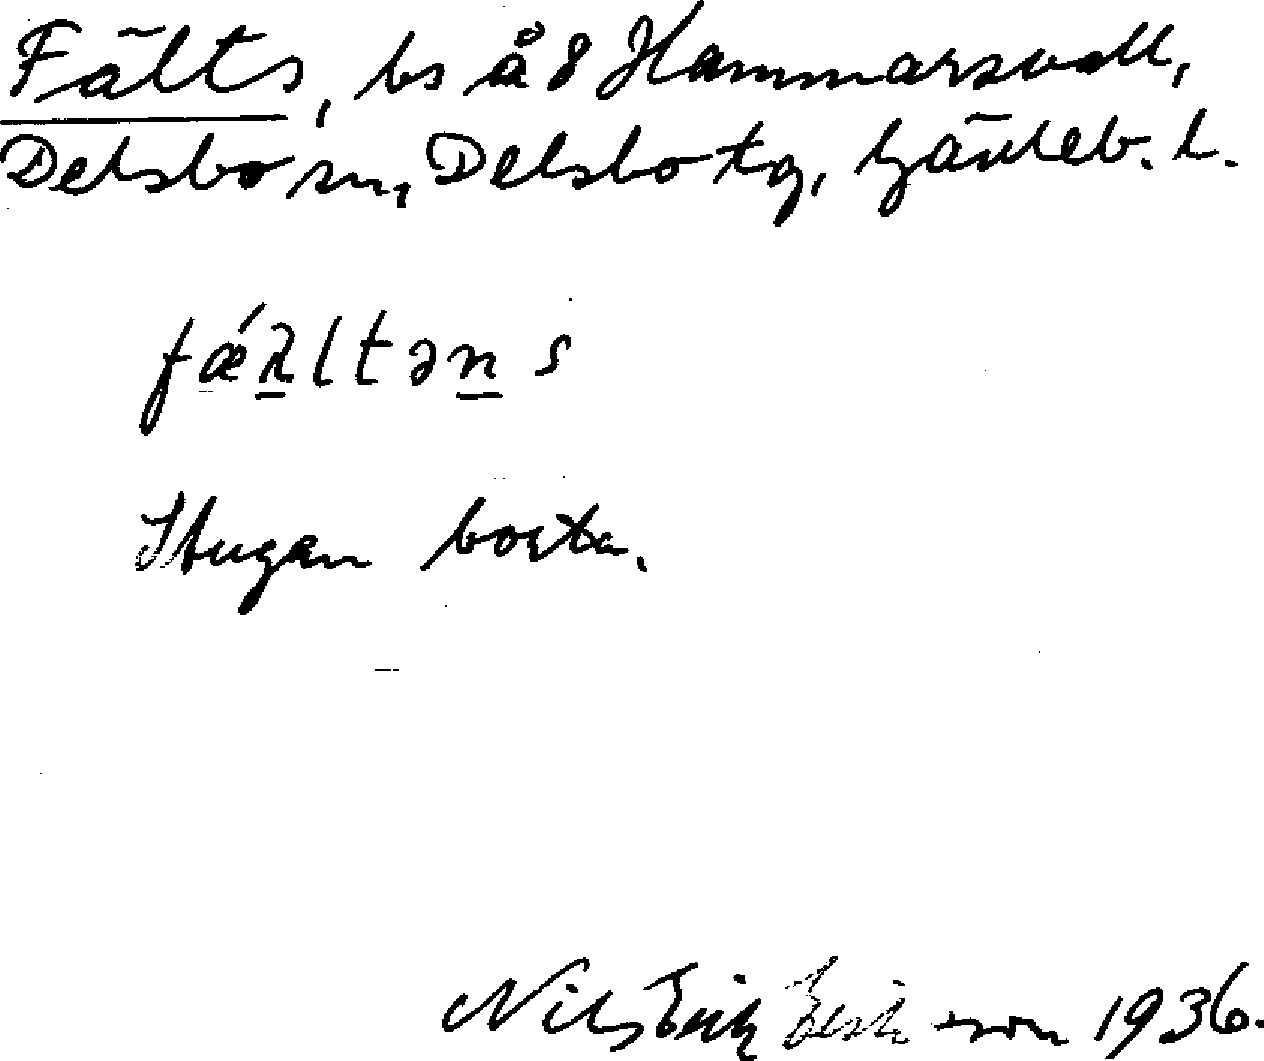 Fälts, bs å 8 Hammarsvall,
Delsbo sn, Delsbo tg, Gävleb. l.
fǽλltəns
Stugan borta.
Nils Erik Eriksson 1936.